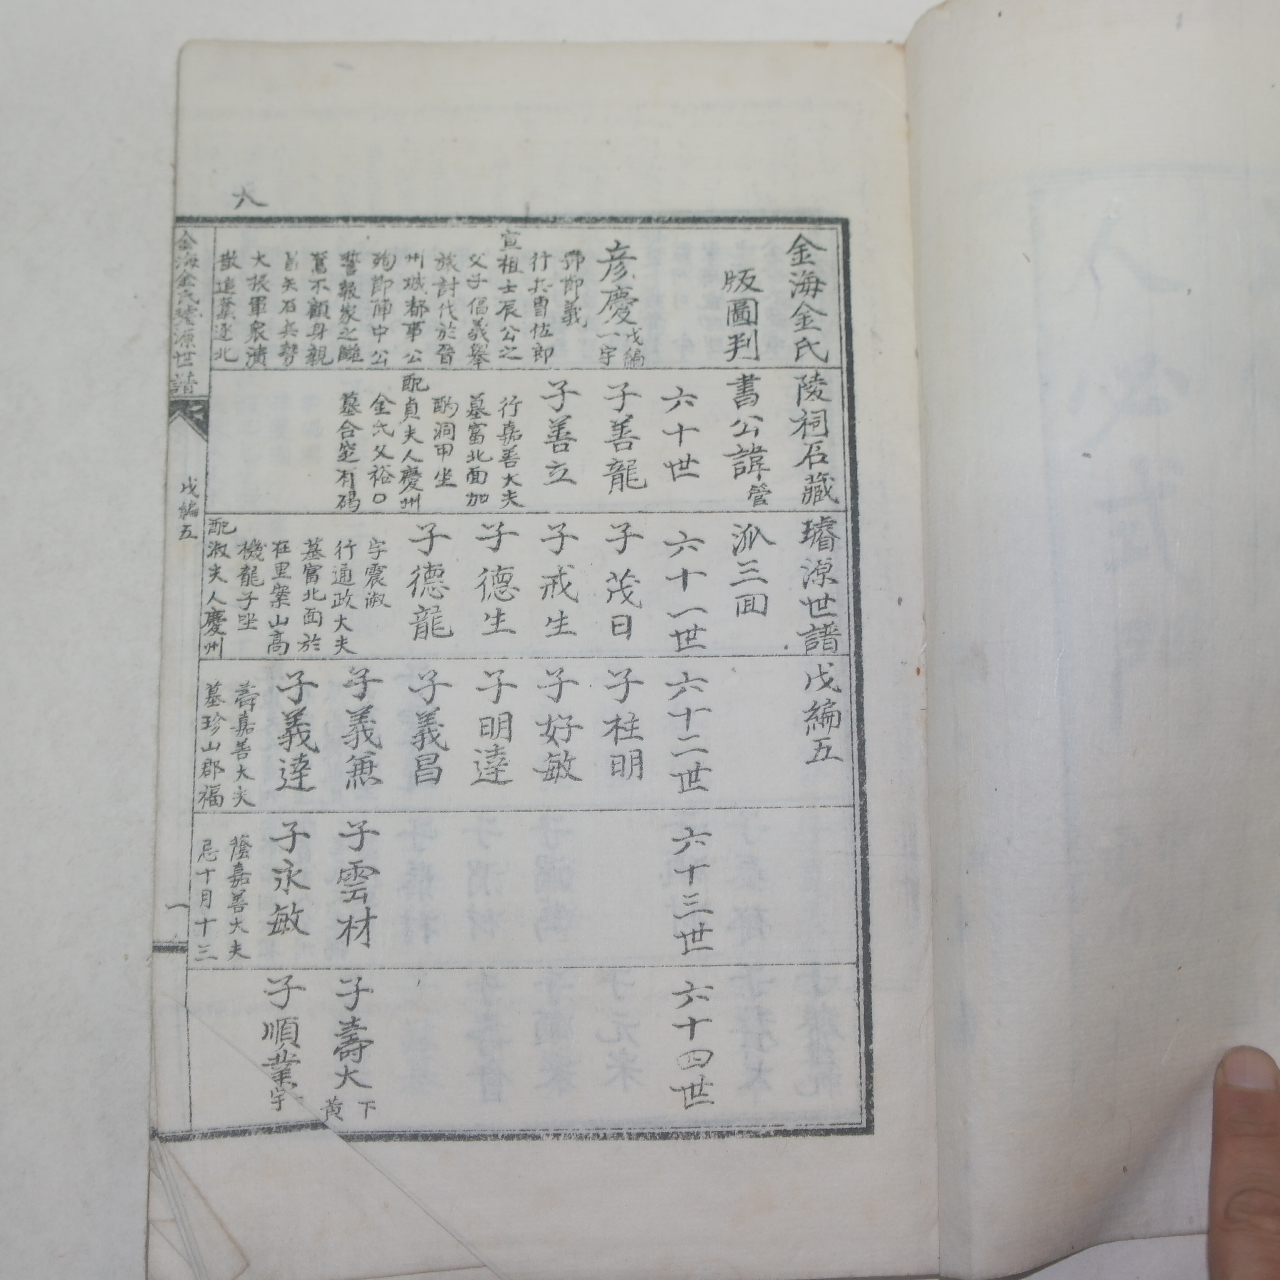 八
金海金氏陵祠石藏璿源世譜戊編五
版圖判書公諱管派三囬
六十世
六十一世
六十二世
六十三世
六十四世
彦慶戊編一宇
行兵曹佐郎
宣祖壬辰公之
父子倡義擧
旅討伐於晉
州城都事公
殉節陣中公
誓報家之讎
奮不顧身親
冒矢石兵勢
大振軍衆潰
散追薬逐北
子善龍
子善立
行嘉善大夫
墓富北面加
酌洞甲坐
配貞夫人慶州
金氏父裕口
墓合窆有碣
子茂日
子戒生
子德生
子德龍
字震淑
行通政大夫
墓富北面於
在里案山高
機龍子坐
配淑夫人慶州
子柱明
子好敏
子明達
子義昌
子義兼
子義達
壽嘉善大夫
墓珍山郡福
子雲材
子永敏
蔭嘉善大夫
忌十月十三
子壽大
下
黄
子順業宇
金海金氏璿源世譜
戊編五
一